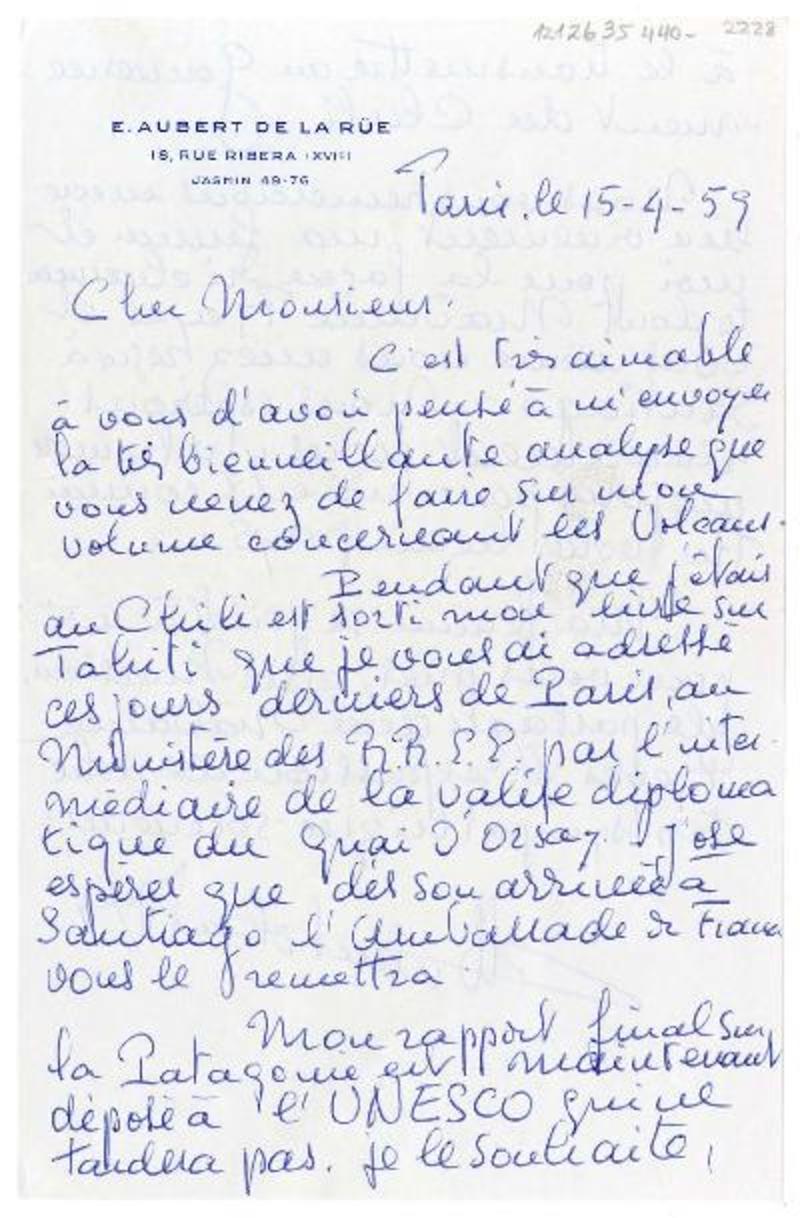 1212635 440- 2228
E. AUBERT DE LA RÜE
18, RUE RIBERA (XVI)
JASMIN 49-76
Paris. le 15-4-59
Cher Monsieur.
C'est très aimable
à vous d'avoir pensé à m'envoyer
la très bienveillante analyse que
vous venez de faire sur mon
volume concernant les Volcans.
Pendant que j'étais
au Chili est sorti mon livre sur
Tahiti que je vous ai adressé
ces jours derniers de Paris, au
Ministère des R.R.E.E. par l'inter-
médiaire de la valise diploma
tique du Quai d'Orsay. J'ose
espérer que dès son arrivée à
Santiago l'Ambassade de France
vous le remettra.
Mon rapport final sur
la Patagonie est maintenant
déposé à l'UNESCO qui ne
tardera pas. je le souhaite,